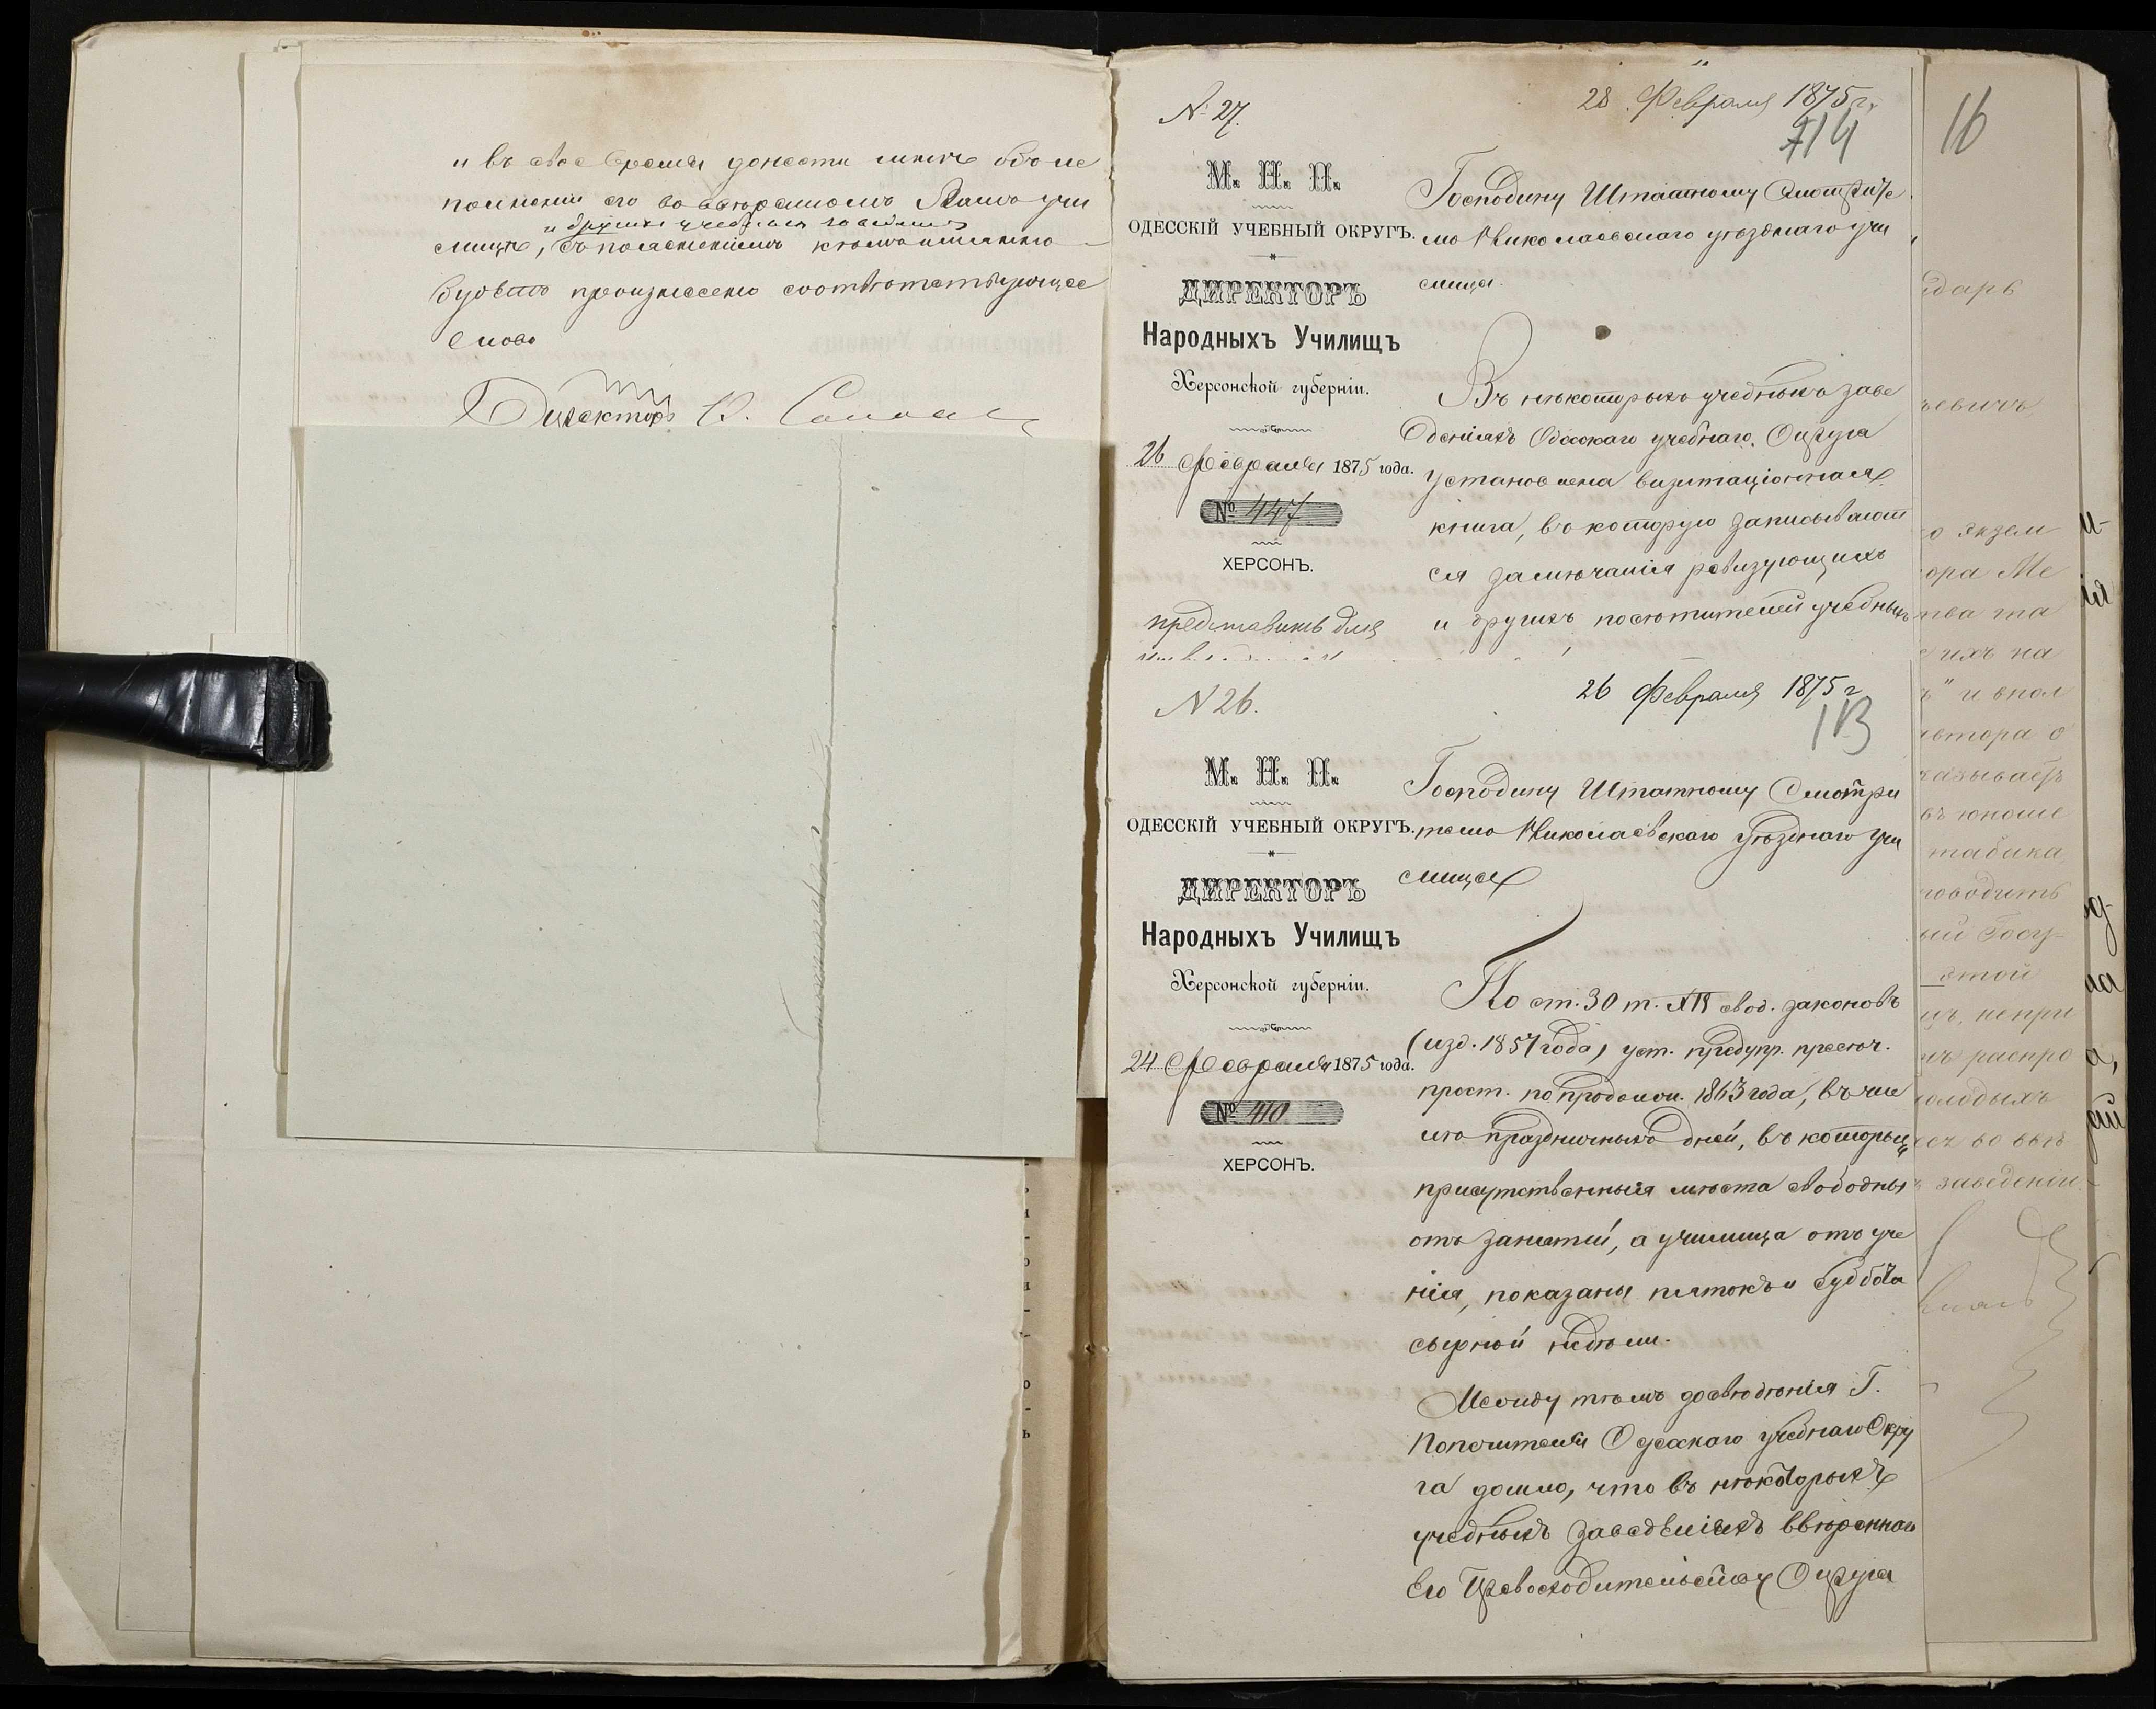 и въ свое время донести мнѣ объ ис
полненіи его во ввѣренномъ Вамъ учи
и другихъ учебныхъ заведеніяхъ
лищѣ, съ поясненіемъ кѣмъ именно
будетъ произнесено соотвѣтствующее
слово
Директоръ
№ 27.
28 Февраля 1875 г.
114
М. Н. П.
ОДЕССКІЙ УЧЕБНЫЙ ОКРУГЪ.
ДИРЕКТОРЪ
Народныхъ Училищъ
Херсонской губерніи.
26 Февраля 1875 года.
№ 447
ХЕРСОНЪ.
представить для
Господину Штатному Смотрите
лю Николаевскаго уѣзднаго учи
лища.
Въ нѣкоторыхъ учебныхъ заве
деніяхъ Одесскаго учебнаго Округа
установлена визитаціонная
книга, въ которую записывают
ся замѣчанія ревизующихъ
и другихъ посѣтителей учебныхъ
№ 26.
26 Февраля 1875 г
113
М. Н. П.
ОДЕССКІЙ УЧЕБНЫЙ ОКРУГЪ.
ДИРЕКТОРЪ
Народныхъ Училищъ
Херсонской губерніи.
24 Февраля 1875 года.
№ 410
ХЕРСОНЪ.
Господину Штатному Смотри
телю Николаевскаго уѣзднаго Учи
лища
По ст. 30 т. XIV свод. законовъ
(изд. 1857 года) уст. предупр. пресѣч.
прест. по продолж. 1863 года, въ чис
лѣ праздничныхъ дней, въ которые
присутственныя мѣста свободны
отъ занятій, а училища отъ уче
нія, показаны пятокъ и суббота
сырной недѣли.
Между тѣмъ до свѣдѣнія Г.
Попечителя Одесскаго учебнаго Окру
га дошло, что въ нѣкоторыхъ
учебныхъ заведеніяхъ ввѣреннаго
Его Превосходительству Округа
16
дарь
евичъ
о экзем
ора Ме
тва та
ихъ на
ъ" и впол
автора о
казываетъ
въ юноше
табака,
роводить
ый Госу=
этой
непри
распро
молодыхъ
заведені